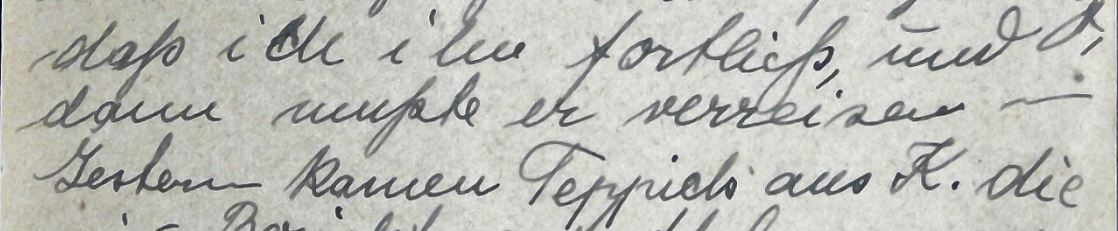 daß ich ihn fortließ, und
dann mußte er verreisen —
Gestern kamen Teppichs aus K. die